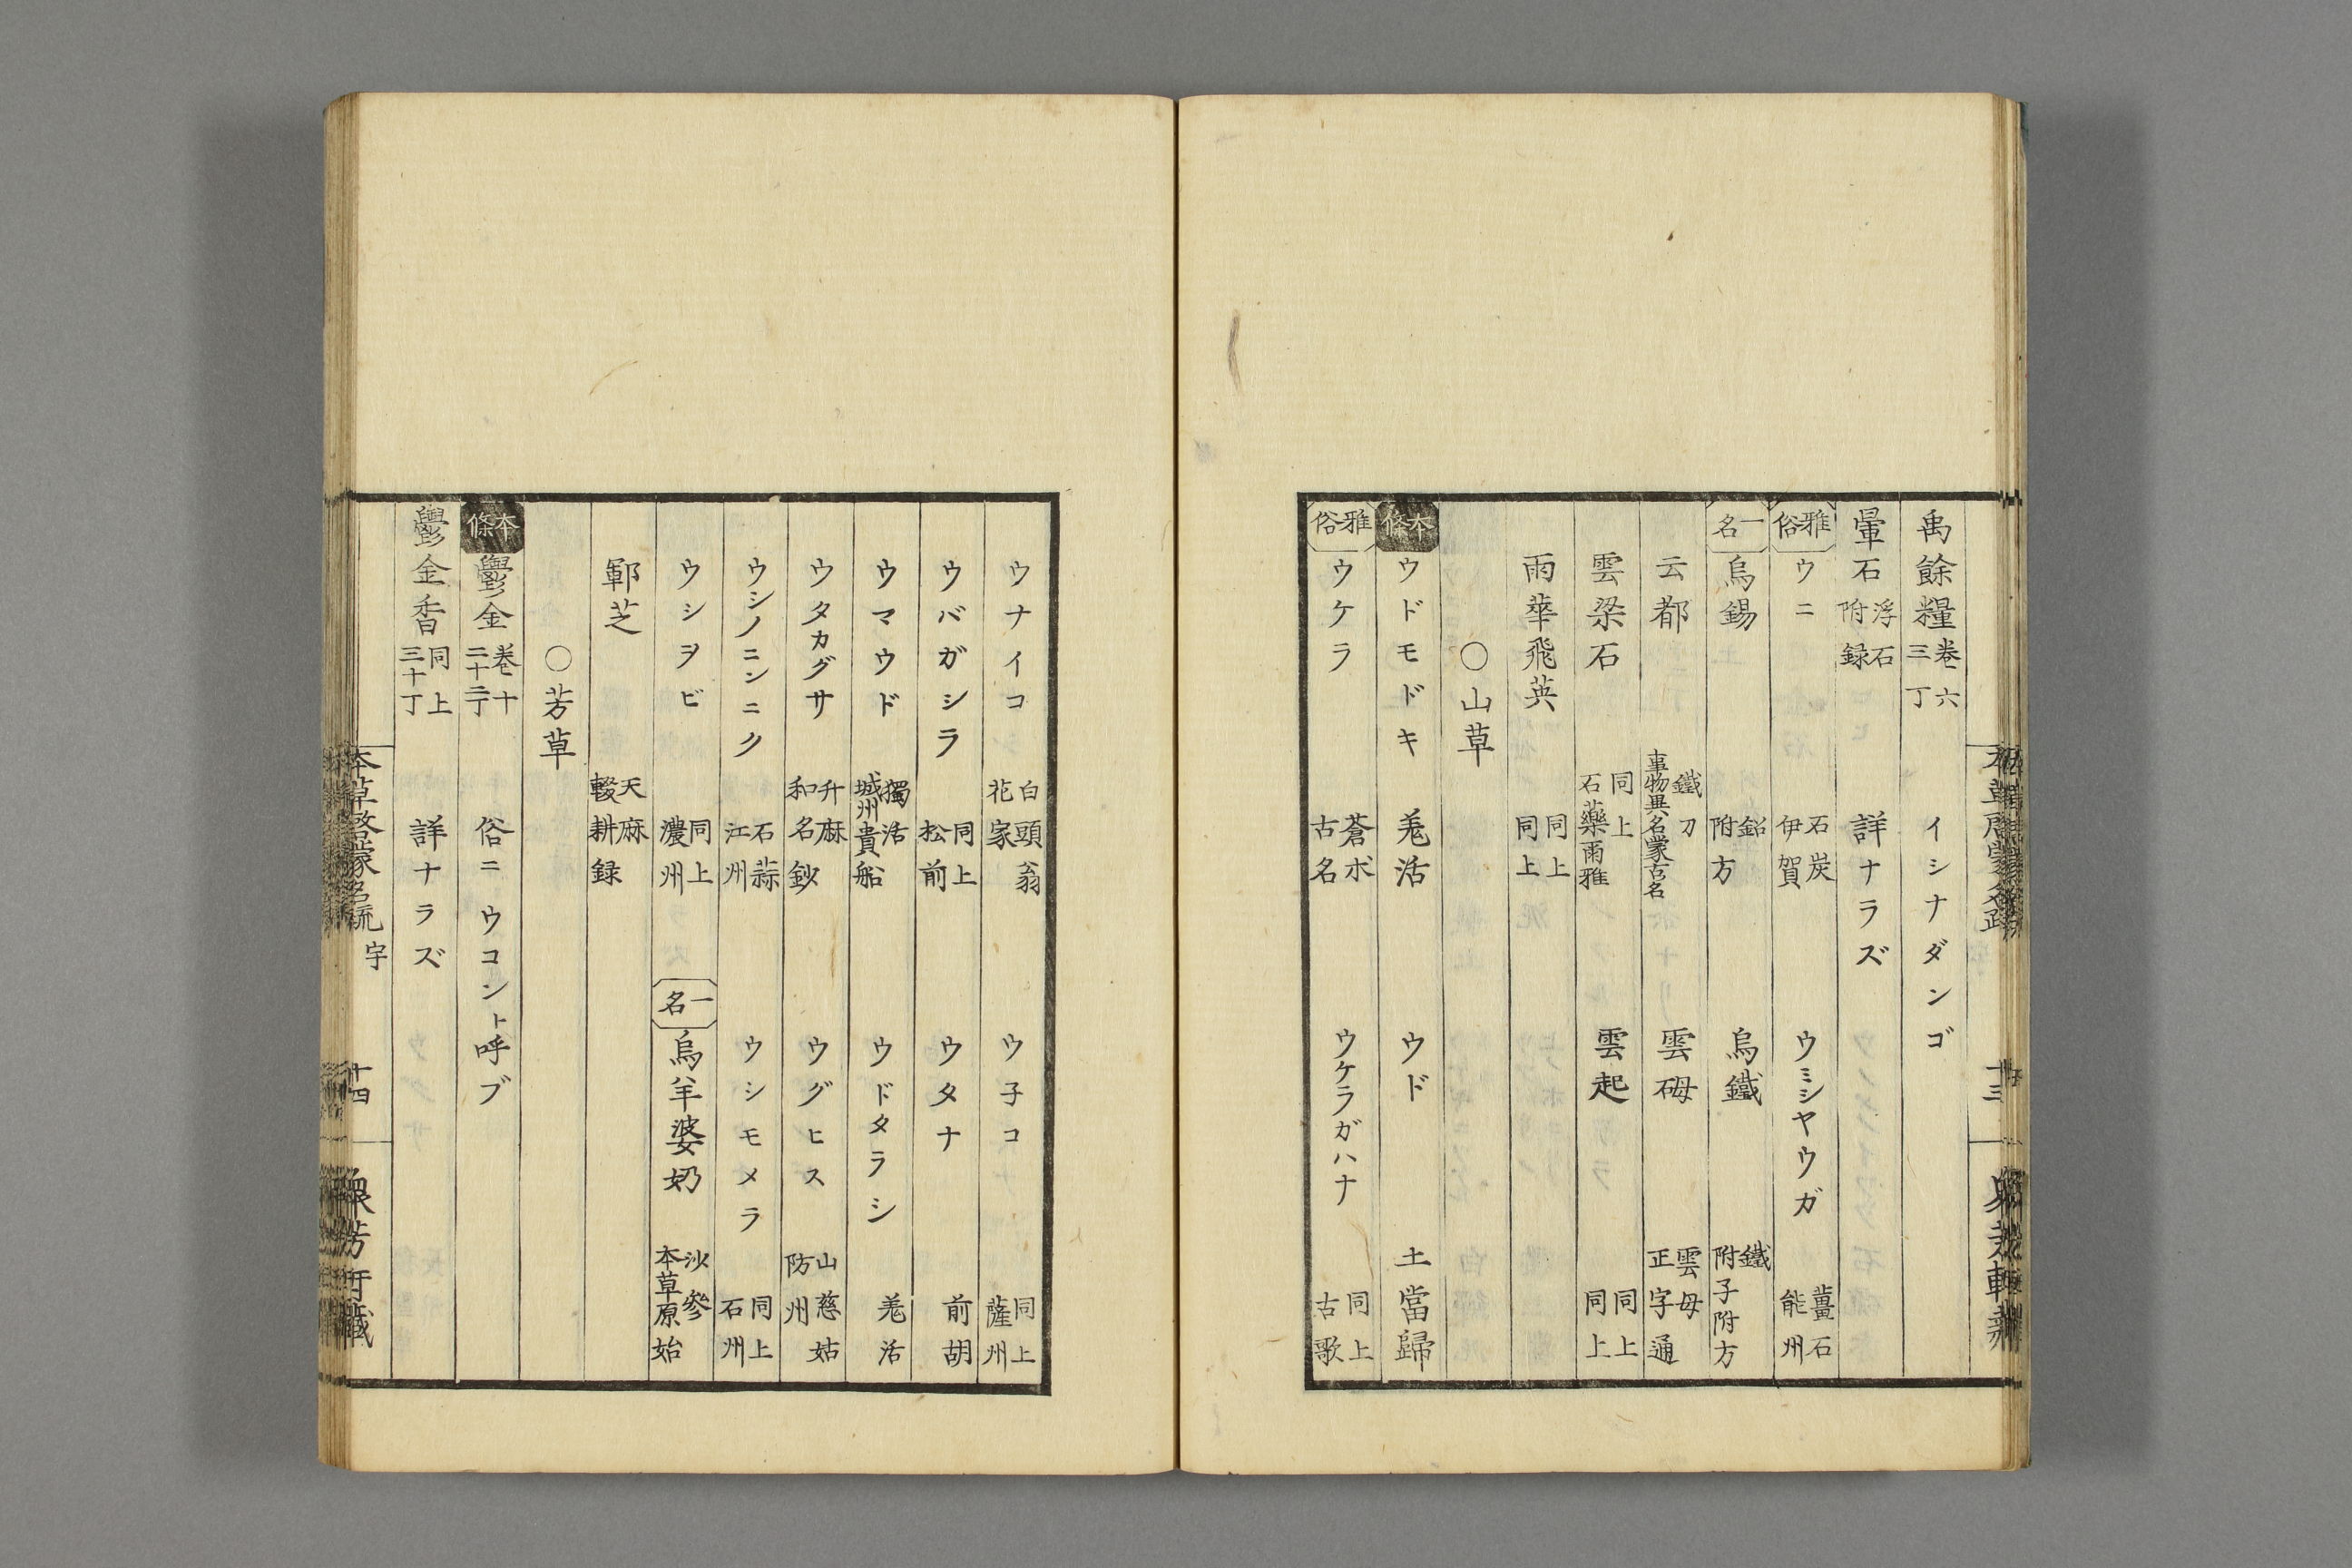 禹餘糧 卷六 三丁 イシナダンゴ
暈石 浮石附録 詳ナラズ
雅俗 ウニ 石炭 伊賀 ウミシヤウガ 薑石 能州
一名 烏錫 鉛附方 烏鐵 鐵附子附方
云都 鐵刀 事物異名蒙古名 雲砪 雲母 正字通
雲梁石 同上 石藥雨雅 雲起 同上 同上
雨華飛英 同上 同上
〇山草
本條 ウドモドキ 羗活 ウド 土當歸
雅俗 ウケラ 蒼朮 古名 ウケラガハナ 同上 古歌
ウナイコ 白頭翁 花家 ウ子コ 同上 薩州
ウバガシラ 同上 松前 ウタナ 前胡
ウマウド 獨活 城州貴船 ウドタラシ 羗活
ウタカグサ 升麻 和名鈔 ウグヒス 山慈姑 防州
ウシノニンニク 石蒜 江州 ウシモメラ 同上 石州
ウシヲビ 同上 濃州 一名 烏羊婆奶 沙參 本草原始
鄆芝 天麻 輟耕録
〇芳草
本條 鬱金 卷十 二十二丁 俗ニウコント呼ブ
鬱金香 同上 三十丁 詳ナラズ
本草啓蒙名疏 宇 十四